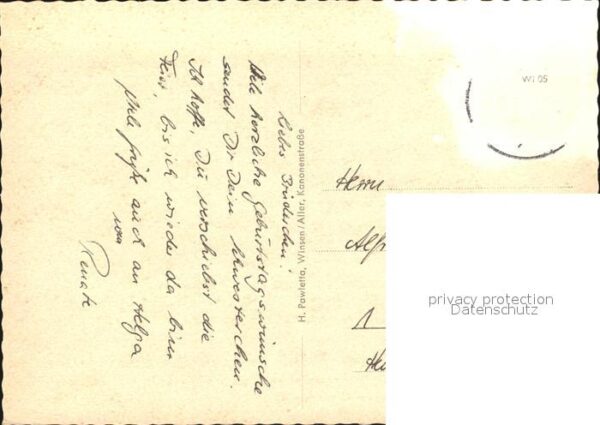 Liebes Brüderchen!
Viele herzliche Geburtstagswünsche
sendet Dir Dein Schwesterchen.
Ich hoffe, Du verschiebst die
Feier, bis ich wieder da bin
Viele Grüße auch an Helga
von
Renate
H. Pawletta, Winsen/Aller, Kanonenstraße
Herrn
Alf
1
WI 05
privacy protection
Datenschutz